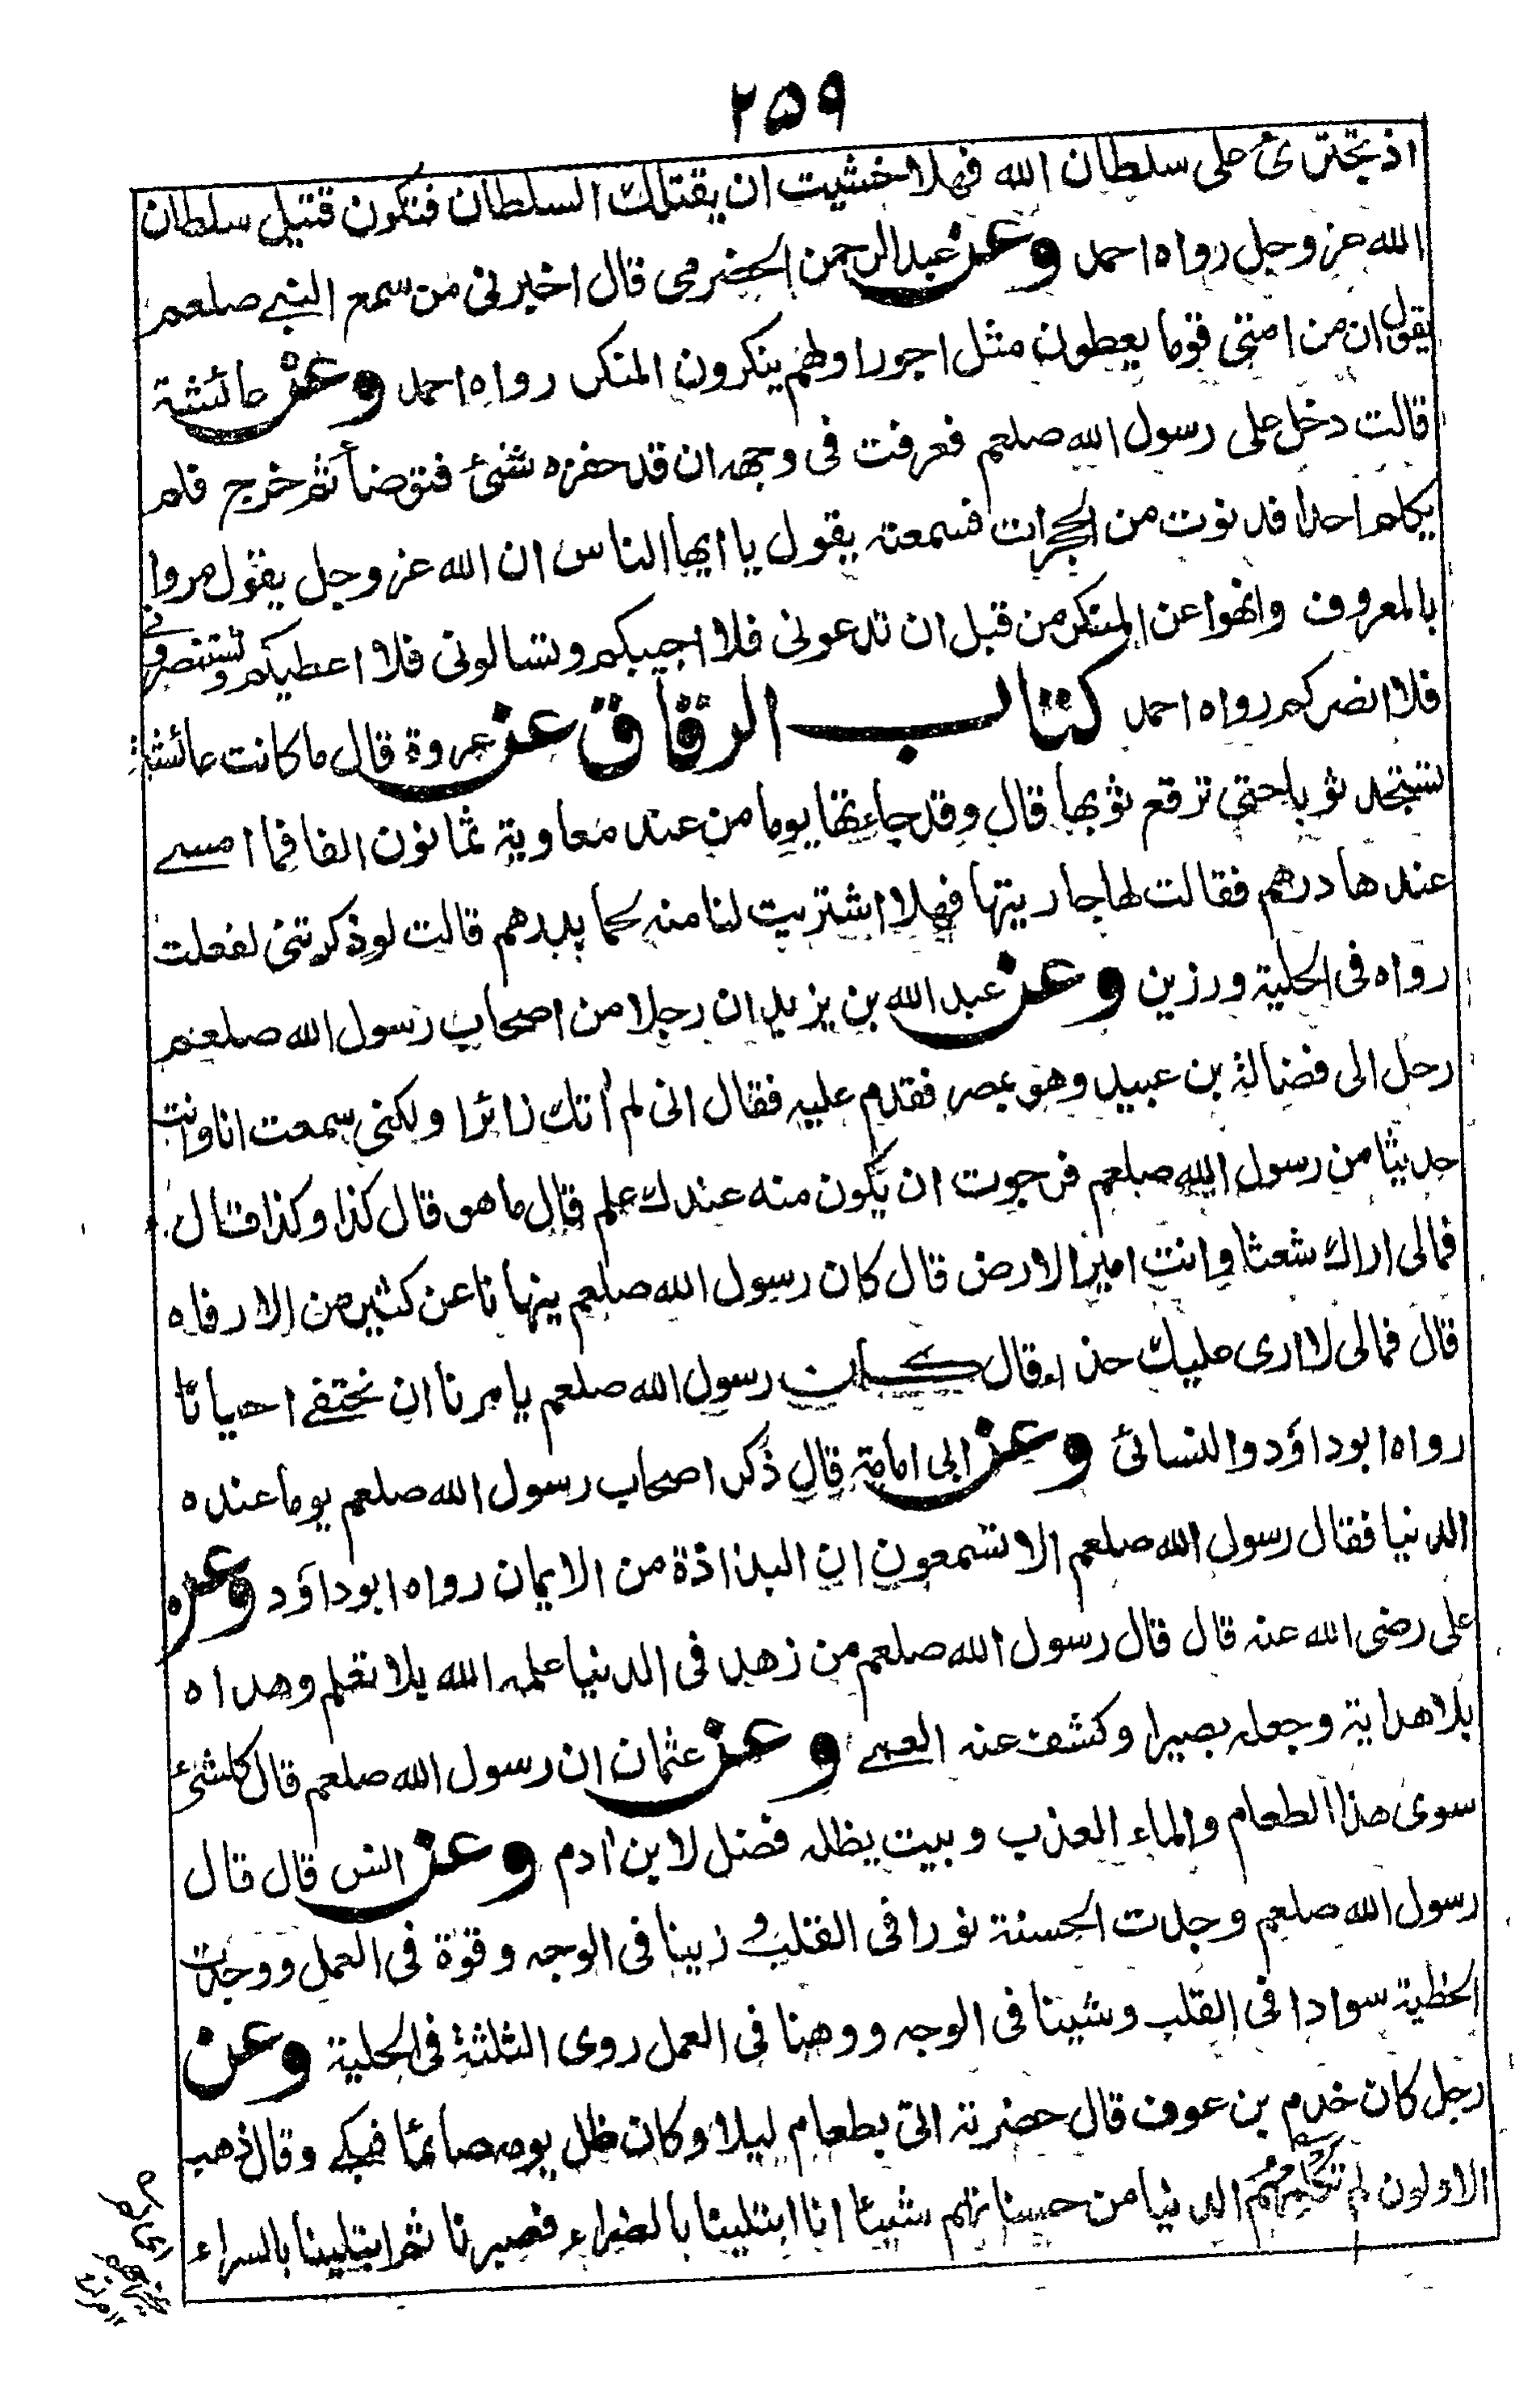 ٢٥٩
اذ تجترئ على سلطان الله فهلا خشيت ان يقتلك السلطان فتكون قتيل سلطان
الله عز وجل رواه احمد وعن عبد الرحمن الحضرمى قال اخبرنى من سمع النبى صلعم
يقول ان من امتى قوما يعطون مثل اجور اولهم ينكرون المنكر رواه احمد وعن عائشة
قالت دخل على رسول الله صلعم فعرفت فى وجهه ان قد حفزه شئ فتوضأ ثم خرج فلم
يكلم احدا فدنوت من الحجرات فسمعته يقول يا ايها الناس ان الله عز وجل يقول مروا
بالمعروف وانهوا عن المنكر من قبل ان تدعونى فلا اجيبكم وتسالونى فلا اعطيكم وتستنصرونى
فلا انصركم رواه احمد كتاب الرقاق عن عروة قال ما كانت عائشة
تستجد ثوبا حتى ترقع ثوبها قال وقد جاءتها يوما من عند معاوية ثمانون الفا فما امسى
عندها درهم فقالت لها جاريتها فهلا اشتريت لنا منه لحما بدرهم قالت لو ذكرتنى لفعلت
رواه فى الحلية ورزين وعن عبد الله بن يزيد ان رجلا من اصحاب رسول الله صلعم
رحل الى فضالة بن عبيد وهو بمصر فقدم عليه فقال انى لم أتك زائرا ولكنى سمعت انا وانت
حديثا من رسول الله صلعم فرجوت ان يكون منه عندك علم قال ما هو قال كذا وكذا قال
فمالى اراك شعثا وانت امير الارض قال كان رسول الله صلعم ينهانا عن كثير من الارفاه
قال فمالى لا ارى عليك حذاء قال كان رسول الله صلعم يامرنا ان نحتفى احيانا
رواه ابو داؤد والنسائى وعن ابى امامة قال ذكر اصحاب رسول الله صلعم يوما عنده
الدنيا فقال رسول الله صلعم الا تسمعون ان البذاذة من الايمان رواه ابو داؤد وعن
على رضى الله عنه قال قال رسول الله صلعم من زهد فى الدنيا علمه الله بلا تعلم وهداه
بلا هداية وجعله بصيرا وكشف عنه العمى وعن عثمان ان رسول الله صلعم قال كل شئ
سوى هذا الطعام والماء العذب وبيت يظله فضل لابن أدم وعن انس قال قال
رسول الله صلعم وجدت الحسنة نورا فى القلب و زينا فى الوجه وقوة فى العمل ووجدت
الخطية سوادا فى القلب وشينا فى الوجه ووهنا فى العمل روى الثلثة فى الحلية وعن
رجل كان خدم بن عوف قال حضرته اتى بطعام ليلا وكان ظل يومه صائما فبكى وقال ذهب
الاولون لم تكلمهم الدنيا من حسناتهم شيئا انا ابتلينا بالضراء فصبرنا ثم ابتلينا بالسراء